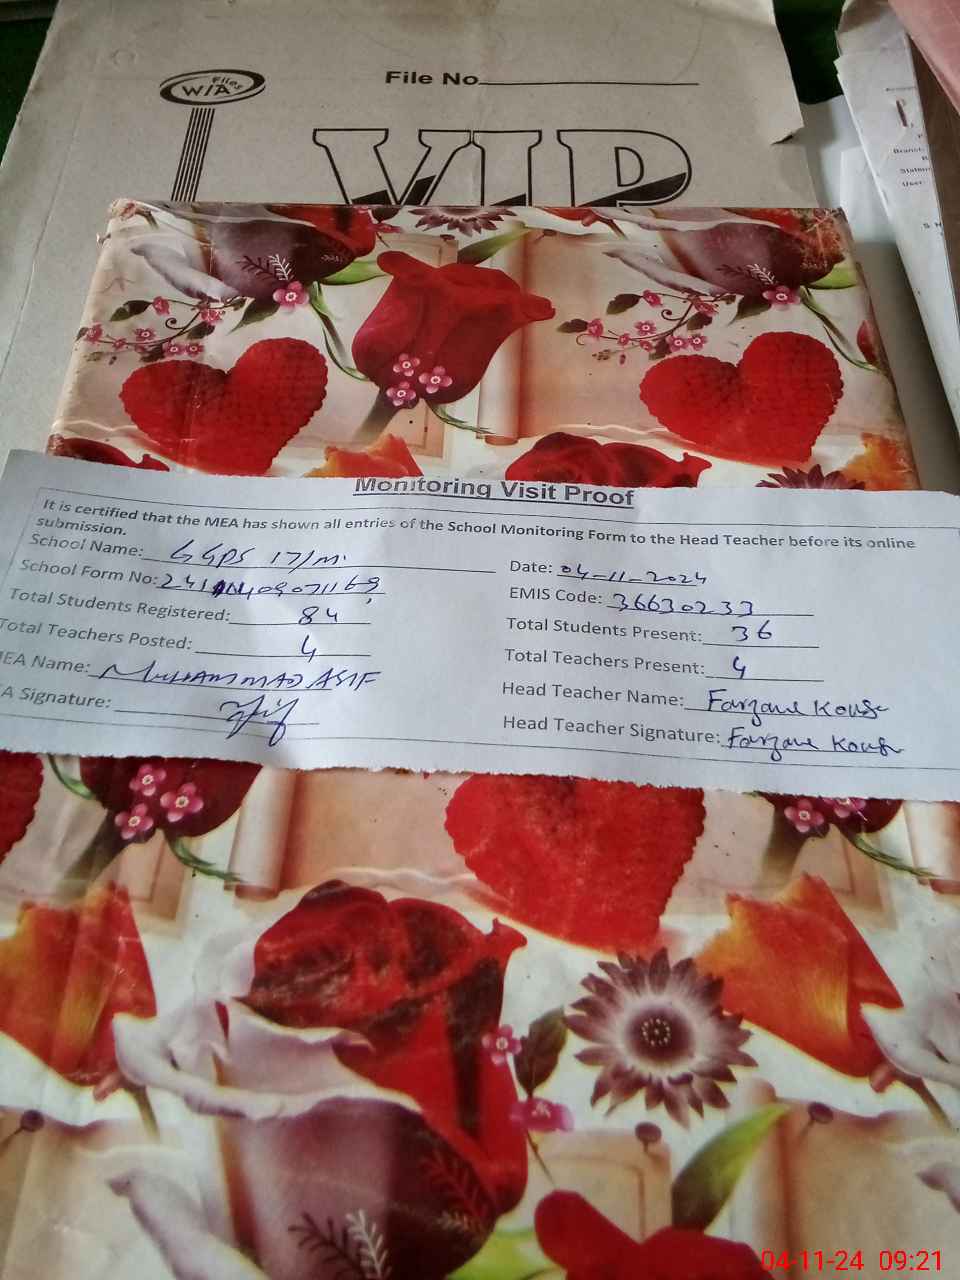 Files
W/A
File No
VIP
Monitoring Visit Proof
It is certified that the MEA has shown all entries of the School Monitoring Form to the Head Teacher before its online
submission.
School Name: GGPS 17/M.
Date: 04-11-2024
School Form No:
EMIS Code: 36630233
Total Students Registered: 84
Total Students Present: 36
Total Teachers Posted: 4
Total Teachers Present: 4
MEA Name: MUHAMMAD ASIF
Head Teacher Name: Farzana Kousr
A Signature:
Head Teacher Signature: Farzana Kousr
User:
04-11-24 09:21